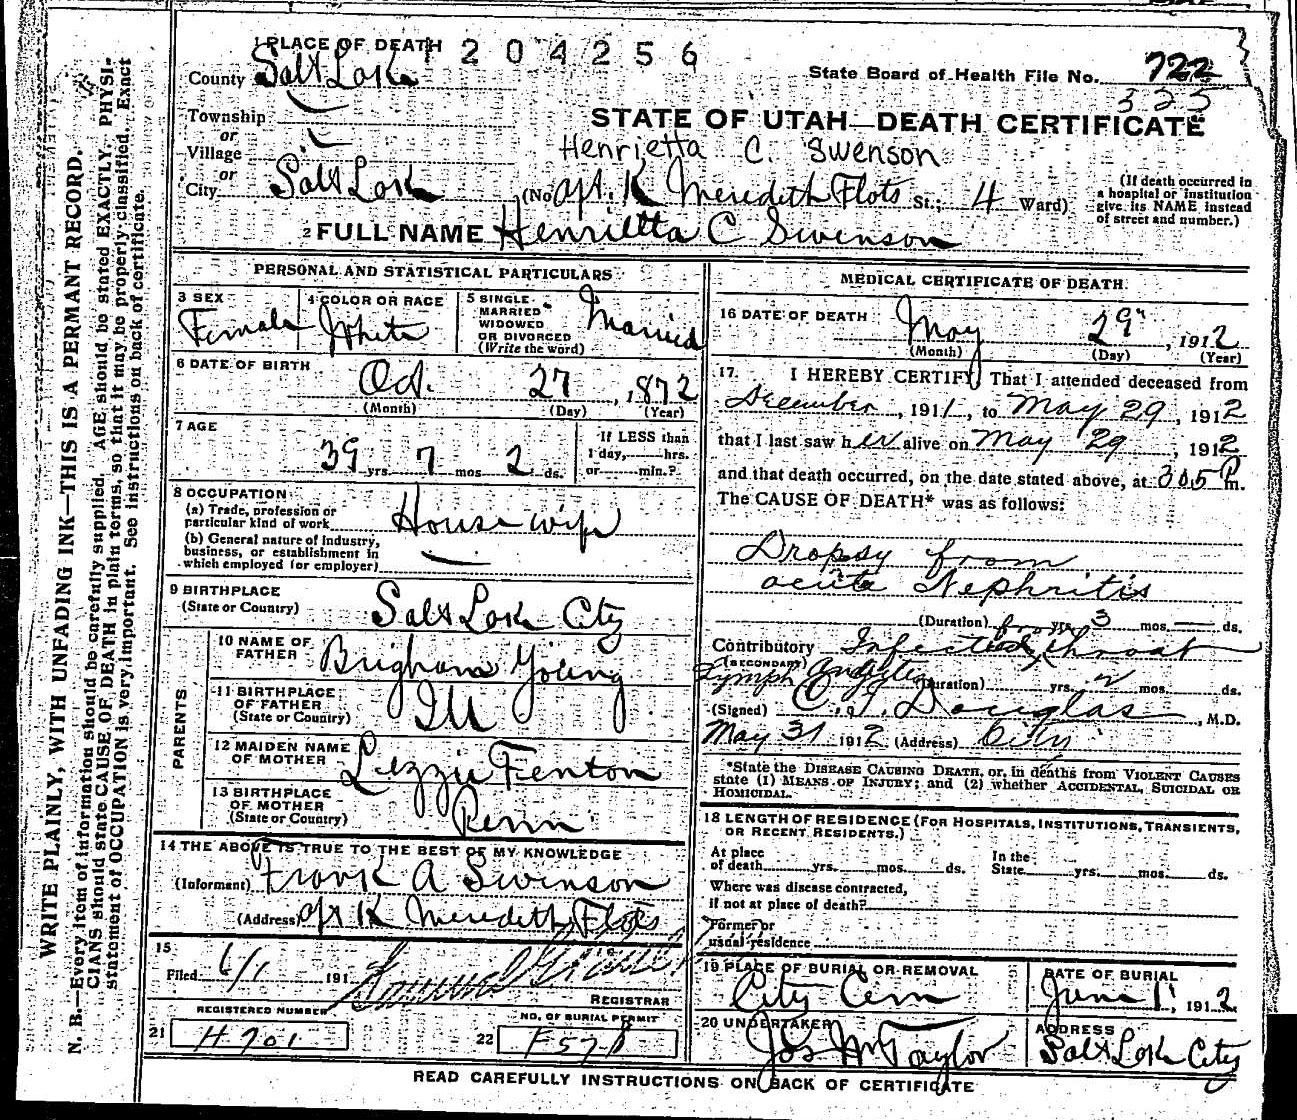 1 PLACE OF DEATH 1204256
County Salt Lake
State Board of Health File No. 722
325
Township
or
Village
or
City Salt Lake
STATE OF UTAH—DEATH CERTIFICATE
Henrietta C. Swenson
(No. apt. K Meredith Flats St.; 4 Ward)
(If death occurred in
a hospital or institution
give its NAME instead
of street and number.)
2 FULL NAME Henrietta C Swenson
PERSONAL AND STATISTICAL PARTICULARS
3 SEX Female
4 COLOR OR RACE White
5 SINGLE. MARRIED WIDOWED OR DIVORCED (Write the word) Married
6 DATE OF BIRTH Oct. 27, 1872
(Month) (Day) (Year)
7 AGE
39 yrs. 7 mos 2 ds.
If LESS than
1 day, hrs.
or min.?
8 OCCUPATION
(a) Trade, profession or
particular kind of work House wife
(b) General nature of industry,
business, or establishment in
which employed (or employer)
9 BIRTHPLACE
(State or Country) Salt Lake City
PARENTS
10 NAME OF
FATHER Brigham Young
11 BIRTHPLACE
OF FATHER
(State or Country) Ill
12 MAIDEN NAME
OF MOTHER Lizzie Fenton
13 BIRTHPLACE
OF MOTHER
(State or Country) Penn
14 THE ABOVE IS TRUE TO THE BEST OF MY KNOWLEDGE
(Informant) Frank A Swenson
(Address) apt K Meredith Flats
15
Filed 6/1 191
REGISTRAR
REGISTERED NUMBER
21 H701
NO. OF BURIAL PERMIT
22
MEDICAL CERTIFICATE OF DEATH
16 DATE OF DEATH May 29", 1912
(Month) (Day) (Year)
17. I HEREBY CERTIFY, That I attended deceased from
December, 1911, to May 29, 1912
that I last saw her alive on May 29, 1912
and that death occurred, on the date stated above, at 305 P m.
The CAUSE OF DEATH* was as follows:
Dropsy from
acute Nephritis
(Duration) yrs. 3 mos. ds.
Contributory Infected throat
(SECONDARY) Lymph
(Duration) yrs. mos. ds.
(Signed) Douglas, M.D.
May 31 1912 (Address) City
*State the DISEASE CAUSING DEATH, or, in deaths from VIOLENT CAUSES
state (1) MEANS OF INJURY; and (2) whether ACCIDENTAL, SUICIDAL OR
HOMICIDAL.
18 LENGTH OF RESIDENCE (FOR HOSPITALS, INSTITUTIONS, TRANSIENTS,
OR RECENT RESIDENTS.)
At place
of death yrs. mos. ds.
In the
State yrs. mos. ds.
Where was disease contracted,
if not at place of death?
Former or
usual residence
19 PLACE OF BURIAL OR REMOVAL
City Cem
DATE OF BURIAL
June 1, 1912
20 UNDERTAKER
Jos Wm Taylor
ADDRESS
Salt Lake City
READ CAREFULLY INSTRUCTIONS ON BACK OF CERTIFICATE
WRITE PLAINLY, WITH UNFADING INK—THIS IS A PERMANT RECORD.
N. B.—Every item of information should be carefully supplied. AGE should be stated EXACTLY. PHYSI-
CIANS should state CAUSE OF DEATH in plain terms, so that it may be properly classified. Exact
statement of OCCUPATION is very important. See instructions on back of certificate.